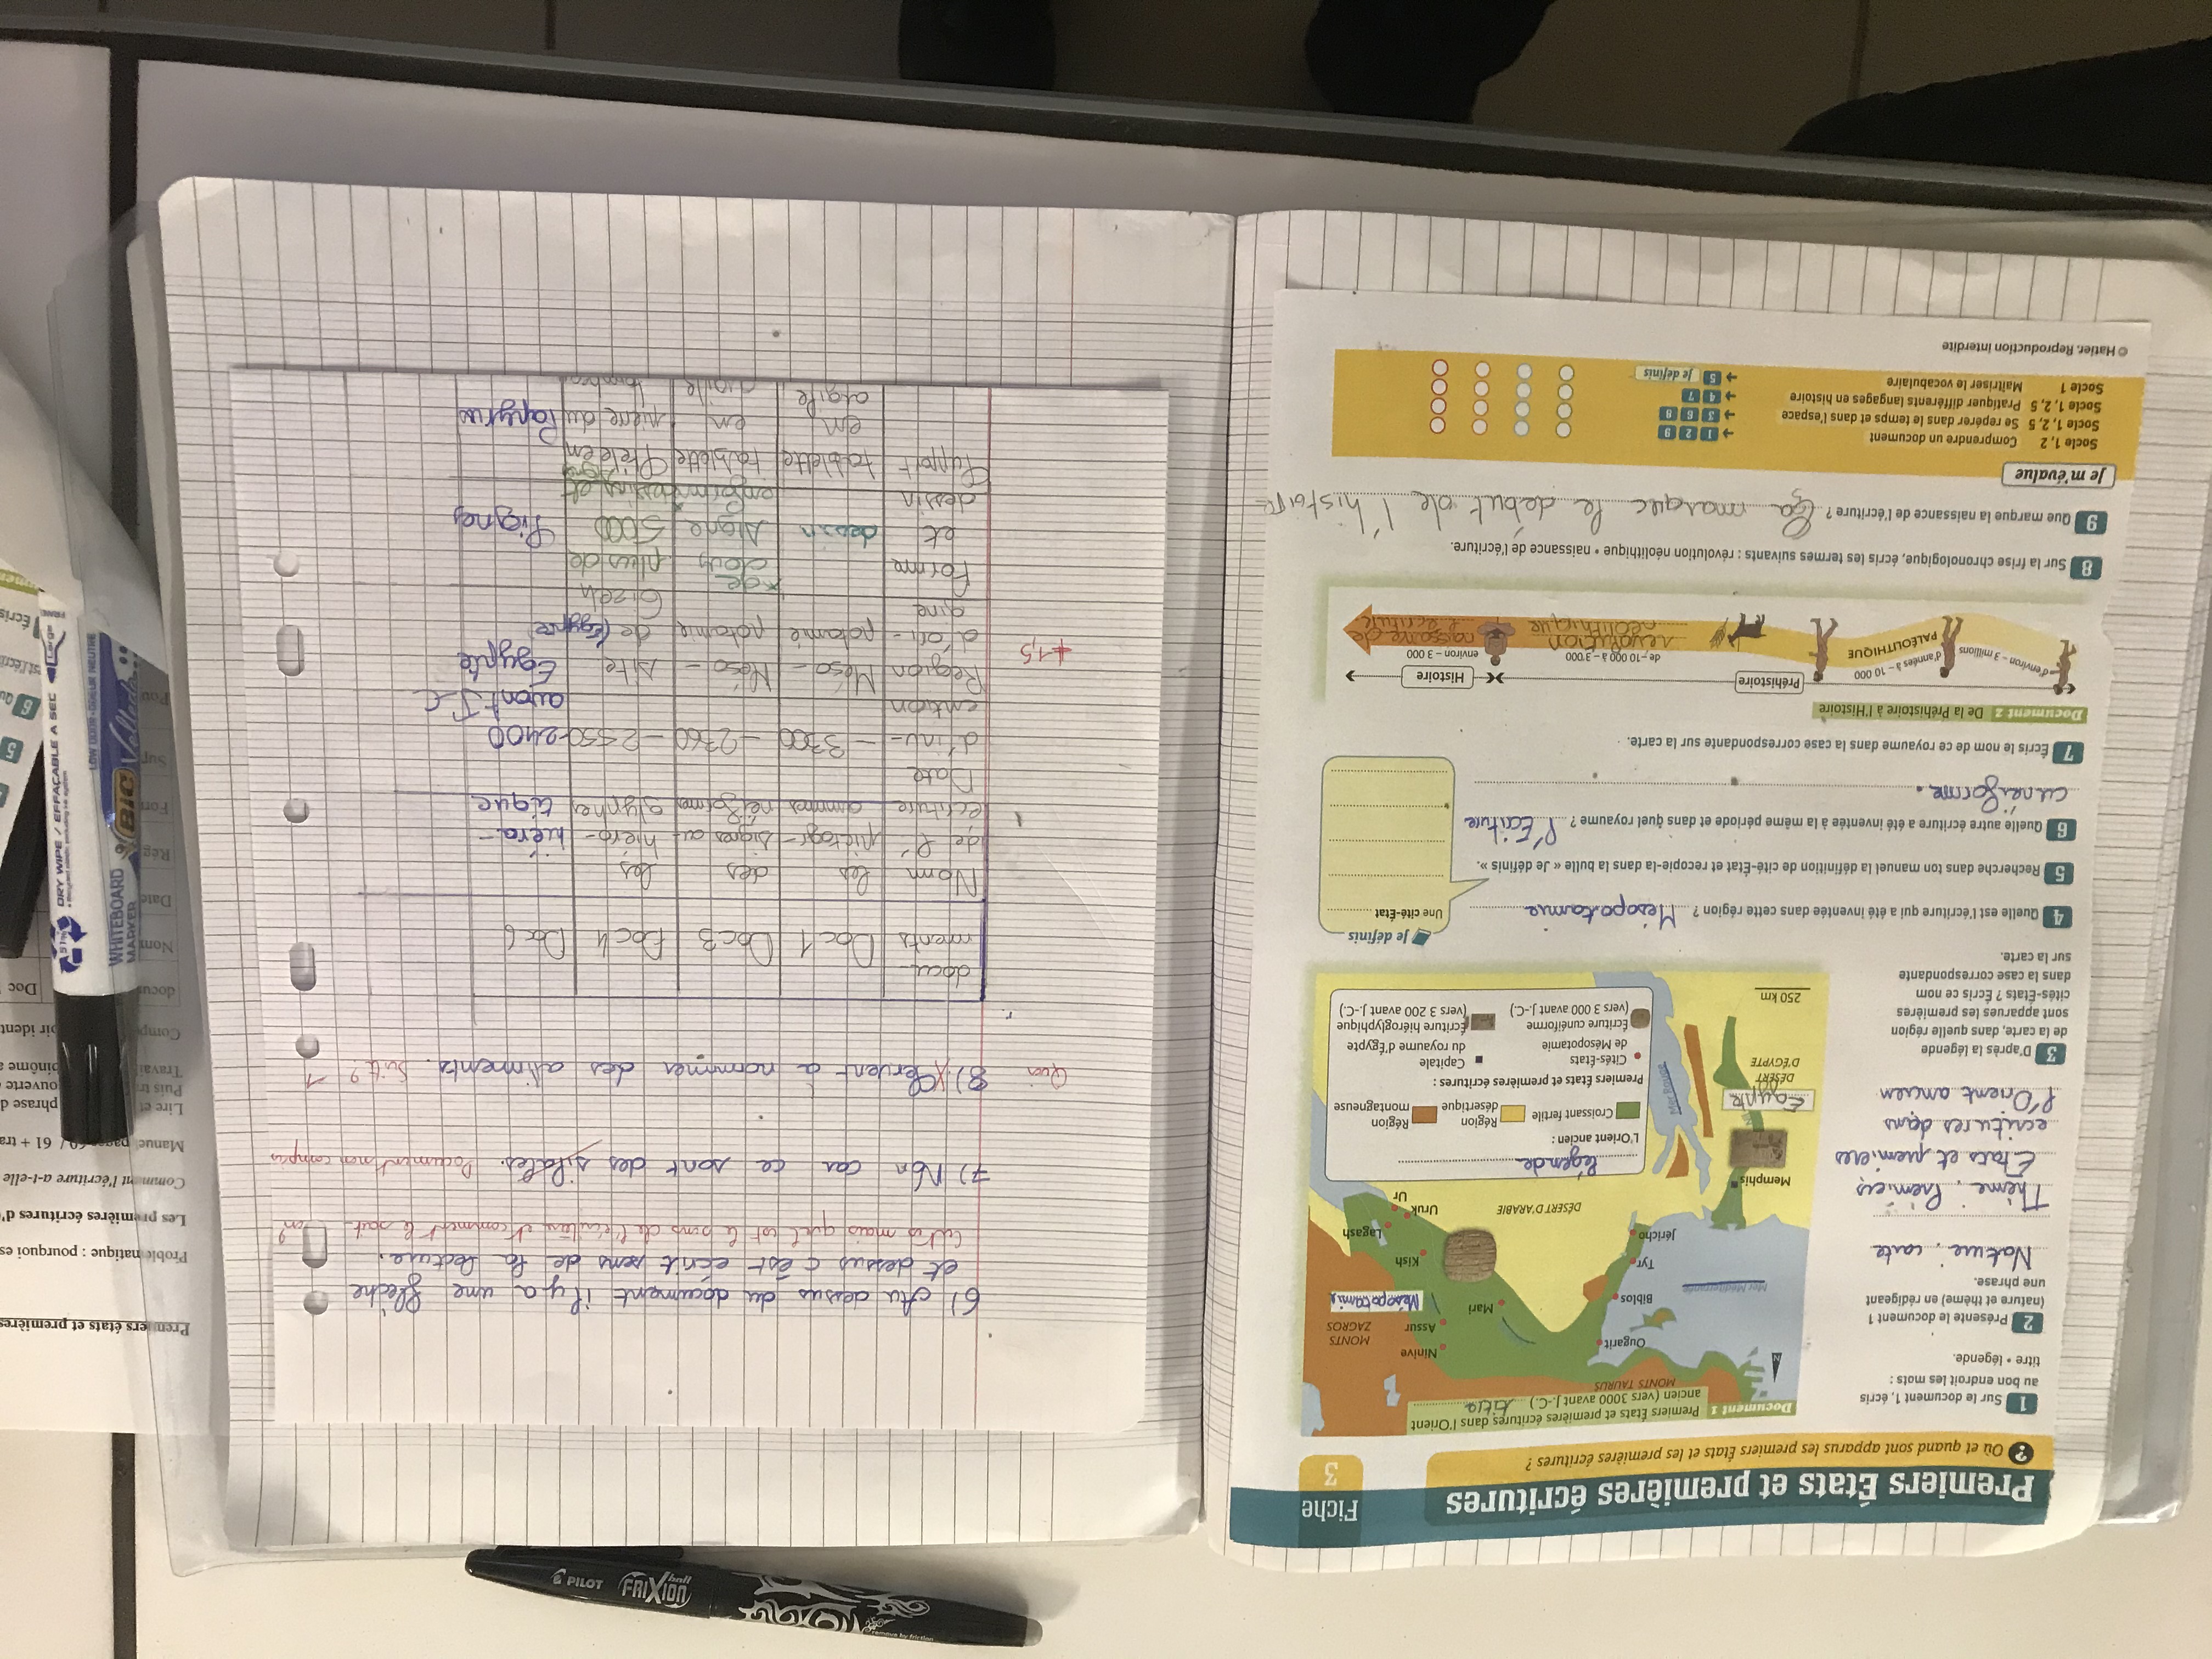 PILOT
FRIXION
ball
Premiers États et premières écritures
Fiche
3
? Où et quand sont apparus les premiers États et les premières écritures ?
1 Sur le document 1, écris
au bon endroit les mots :
titre • légende.
2 Présente le document 1
(nature et thème) en rédigeant
une phrase.
Nature : carte
Thème : Prémiers
États et premières
ecritures dans
l'Orient ancien
3 D'après la légende
de la carte, dans quelle région
sont apparues les premières
cités-États ? Écris ce nom
dans la case correspondante
sur la carte.
Document 1 Premiers États et premières écritures dans l'Orient
ancien (vers 3000 avant J.-C.) titre
MONTS TAURUS
N
Ninive
Ougarit
MONTS
ZAGROS
Assur
Mari
Mésopotamie
Biblos
Mer Méditerranée
Tyr
Kish
Jéricho
Lagash
DÉSERT D'ARABIE
Uruk
Ur
Memphis
Egypte
DÉSERT
D'ÉGYPTE
Mer Rouge
250 km
légende
L'Orient ancien :
Croissant fertile
Région
désertique
Région
montagneuse
Premiers États et premières écritures :
Cités-États
de Mésopotamie
Capitale
du royaume d'Égypte
Écriture cunéiforme
(vers 3 000 avant J.-C.)
Écriture hiéroglyphique
(vers 3 200 avant J.-C.)
4 Quelle est l'écriture qui a été inventée dans cette région ? Mésopotamie
Je définis
Une cité-État
5 Recherche dans ton manuel la définition de cité-État et recopie-la dans la bulle « Je définis ».
6 Quelle autre écriture a été inventée à la même période et dans quel royaume ? l'Ecriture
cunéiforme.
7 Écris le nom de ce royaume dans la case correspondante sur la carte.
Document 2 De la Préhistoire à l'Histoire
Préhistoire
Histoire
d'environ – 3 millions
d'années à – 10 000
PALÉOLITHIQUE
de –10 000 à – 3'000
révolution
néolithique
environ – 3 000
naissance de
l'écriture
8 Sur la frise chronologique, écris les termes suivants : révolution néolithique • naissance de l'écriture.
9 Que marque la naissance de l'écriture ? Ça marque le début de l'histoire
Je m'évalue
Socle 1, 2 Comprendre un document → 1 2 9
Socle 1, 2, 5 Se repérer dans le temps et dans l'espace → 3 6 8
Socle 1, 2, 5 Pratiquer différents langages en histoire → 4 7
Socle 1 Maîtriser le vocabulaire → 5 Je définis
© Hatier. Reproduction interdite
6) Au dessus du document il y a une flèche
et dessus c'est écrit sens de la lecture.
mais quel est le sens de l'écriture et comment le sait-on?
7) Non car ce sont des Document non compris
Quoi 8) Servent à nommer des aliments. Suite ?
docu-
ments Doc 1 Doc 3 Doc 4 Doc 6
Nom les des les
de l' pictogr- signes cu hiéro- hiéra-
écriture ammes néiformes glyphes tique
Date
d'inv- -3300 -2360 -2550 -2400
ention avant J-C
Région Méso- Méso- site Egypte
+1,5 d'ori- potamie potamie de (Egypte)
gine Gizeh
forme de clous plus de
et dessin signe 5000 signes
dessin
Support tablette tablette stèle en
en en pierre du Papyrus
argile argile tombeau
Premiers états et premières
Problématique : pourquoi es
Les premières écritures d'
Comment l'écriture a-t-elle
61 + tra
Lire et phrase d
Puis tr ouverte
Travai binôme a
Comp oir ident
docu Doc
Nom
Date
Rég
For
Sup
Pou
WHITEBOARD
MARKER
BIC
Velleda
DRY WIPE / EFFAÇABLE A SEC
5
6 Qu
Écris